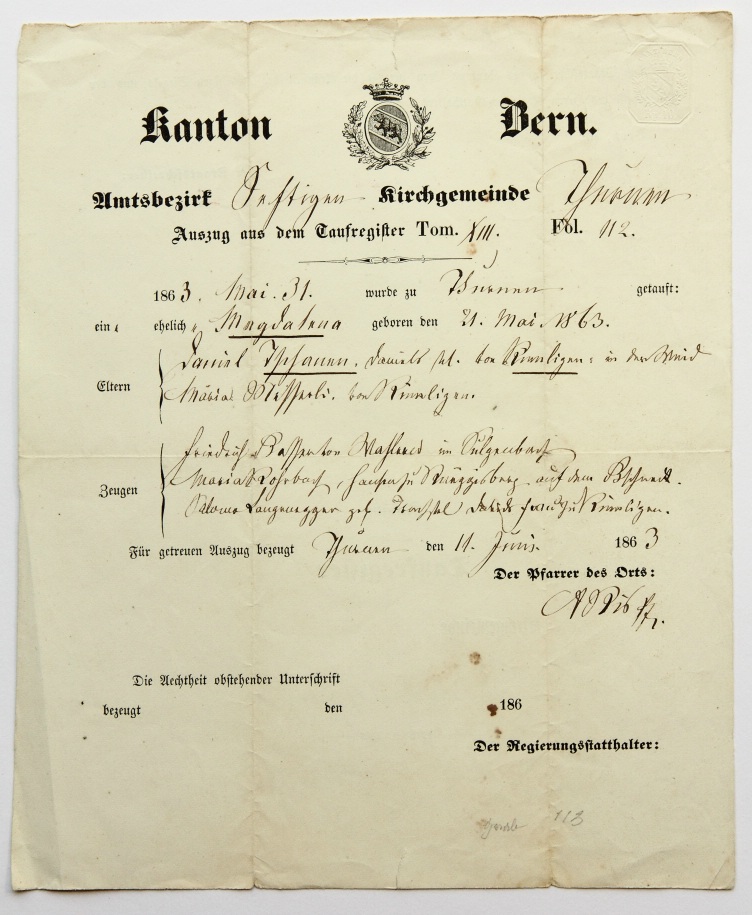 Kanton Bern.
Amtsbezirk Seftigen Kirchgemeinde Thurnen
Auszug aus dem Taufregister Tom. XIII. Fol. 112.
1863. Mai. 31. wurde zu Thurnen getauft:
ein ehelich Magdalena geboren den 21. Mai. 1863.
Eltern
Daniel Tschanen, Daniels sel. von Rümligen: in der Weid
Maria Messerli. von Rümligen.
Zeugen
Friedrich von Wahleren im Sulgenbach
Maria Rohrbach, zu Rüeggisberg auf dem
Salome Langenegger geb. Trachsel Davids zu Rümligen.
Für getreuen Auszug bezeugt Thurnen den 11. Junis. 1863
Der Pfarrer des Orts:
Die Aechtheit obstehender Unterschrift
bezeugt den 186
Der Regierungsstatthalter:
113